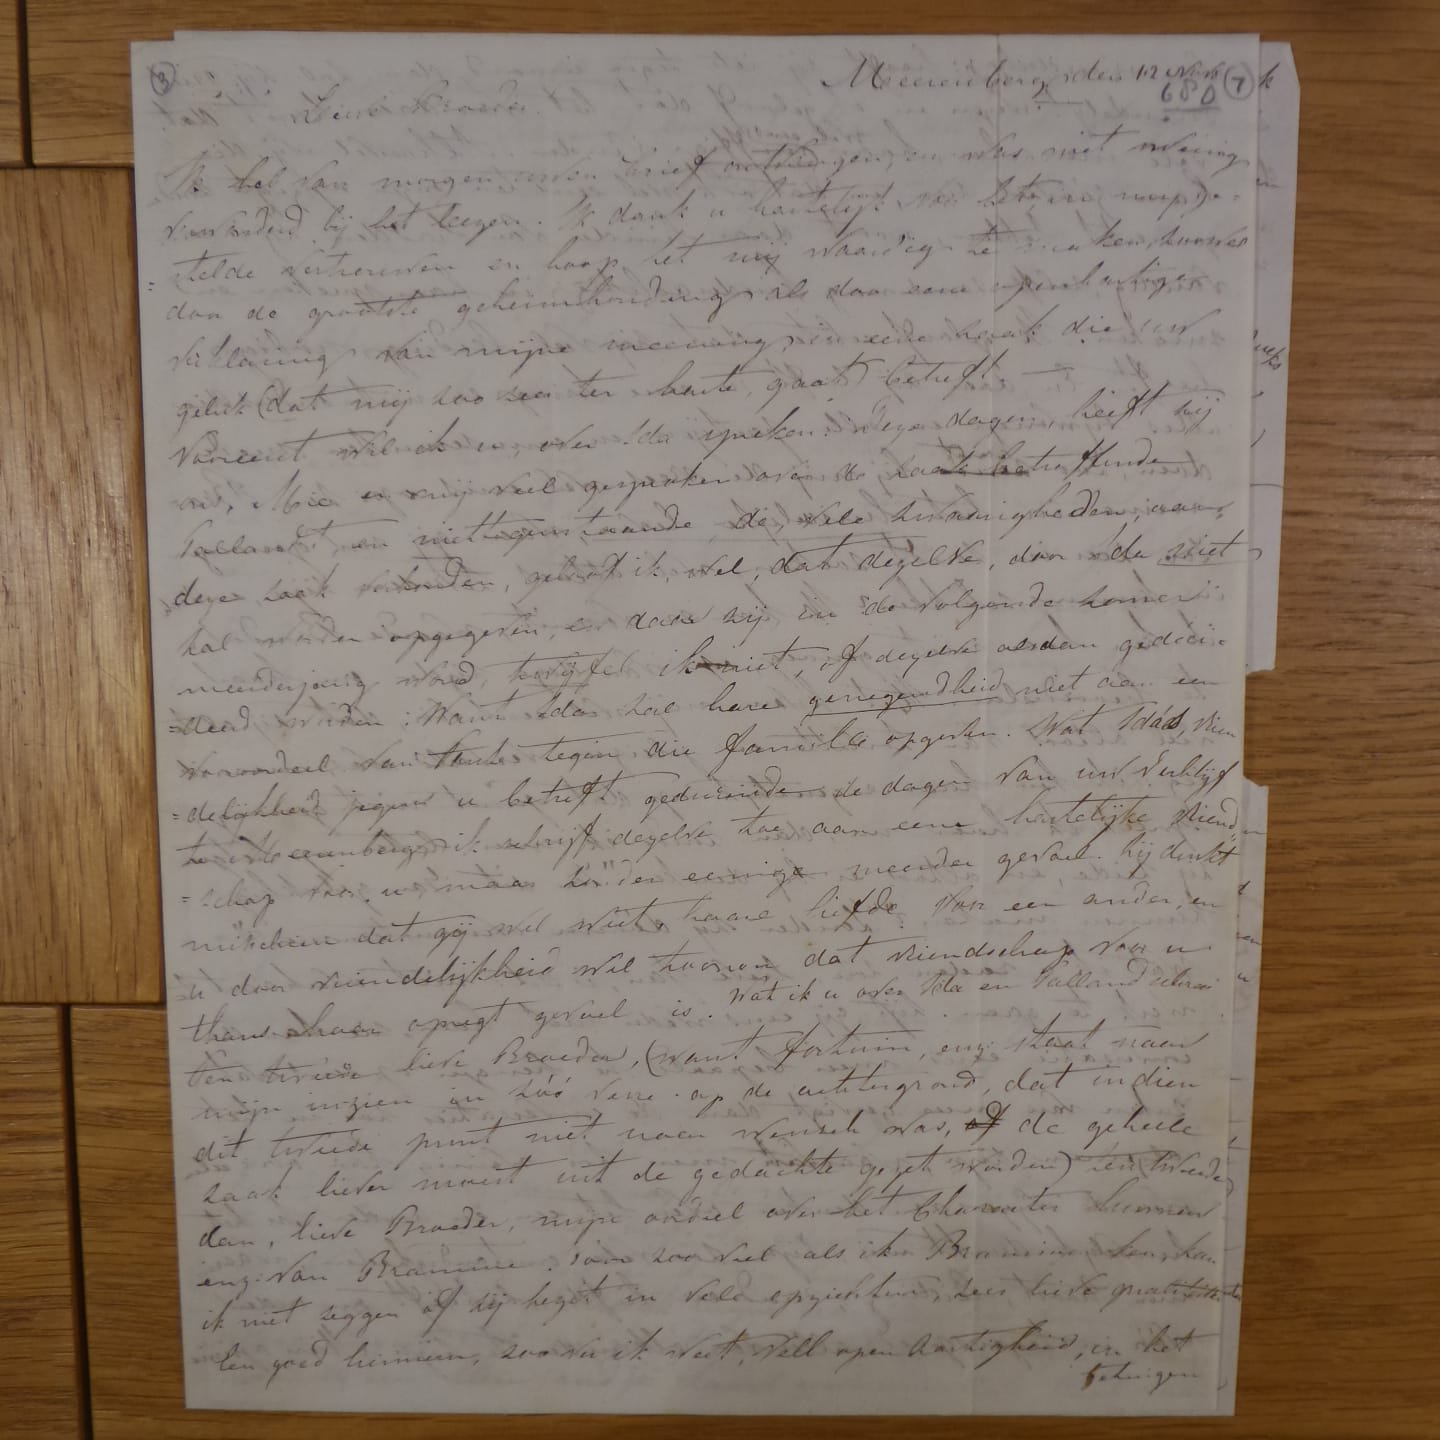 (3) Meerenberg den 12 Nov. (7)
680
Lieve Broeder.
Ik heb van morgen uwen brief ontvangen, en was niet weinig
verwonderd bij het leezen. Ik dank u hartelijk voor het in mij ge-
stelde vertrouwen en hoop het mij waardig te maken, zoowel
door de grootste geheimhouding, als door eene openhartige
verklaring van mijne meening, in eene zaak die uw
geluk (dat mij zoo zeer ter harte gaat) betreft. —
Vooreerst wil ik u over Ida spreken. Dezer dagen heeft zij
en mij veel gesproken over de zaak betreffende
Pallandt en niettegenstaande de vele zwarigheden, aan
deze zaak verbonden, geloof ik wel, dat dezelve, door Ida niet
zal worden opgegeven, en daar zij in de volgende zomer
meerderjarig word, twijfel ik niet, of dezelve alsdan gedeci-
=deerd worden; Want Ida zal hare genegendheid niet aan een
vooroordeel van tegen die familie opgeven. Wat Ida's, vrien
=delijkheid jegens u betreft gedurende de dagen van uw verblijf
te Meerenberg, ik schrijf dezelve toe aan eene hartelijke vriend
=schap voor u, maar zonder eenige meerder gevoel. Zij denkt
misschien dat gij wel weet, haare liefde voor een ander, en
u door vriendelijkheid wil toonen dat vriendschap voor u
thans haar opregt gevoel is. Wat ik u over Ida en Pallandt schreef
Ten tweede lieve Broeder, (want fortuin, enz: staat naar
mijn inzien in zóó verre op de achtergrond, dat indien
dit tweede punt niet naar wensch was, of de geheele
zaak liever moest uit de gedachte gezet worden) ten tweede
dan, lieve Broeder, mijn oordeel over het Charakter humeur
enz: van Bramine. Voor zoo veel als ik Bramine ken, kan
ik niet zeggen of zij bezit in vele opzichten, zeer lieve qualiteiten
Een goed humeur, zoo ver ik weet, veel openhartigheid, in het